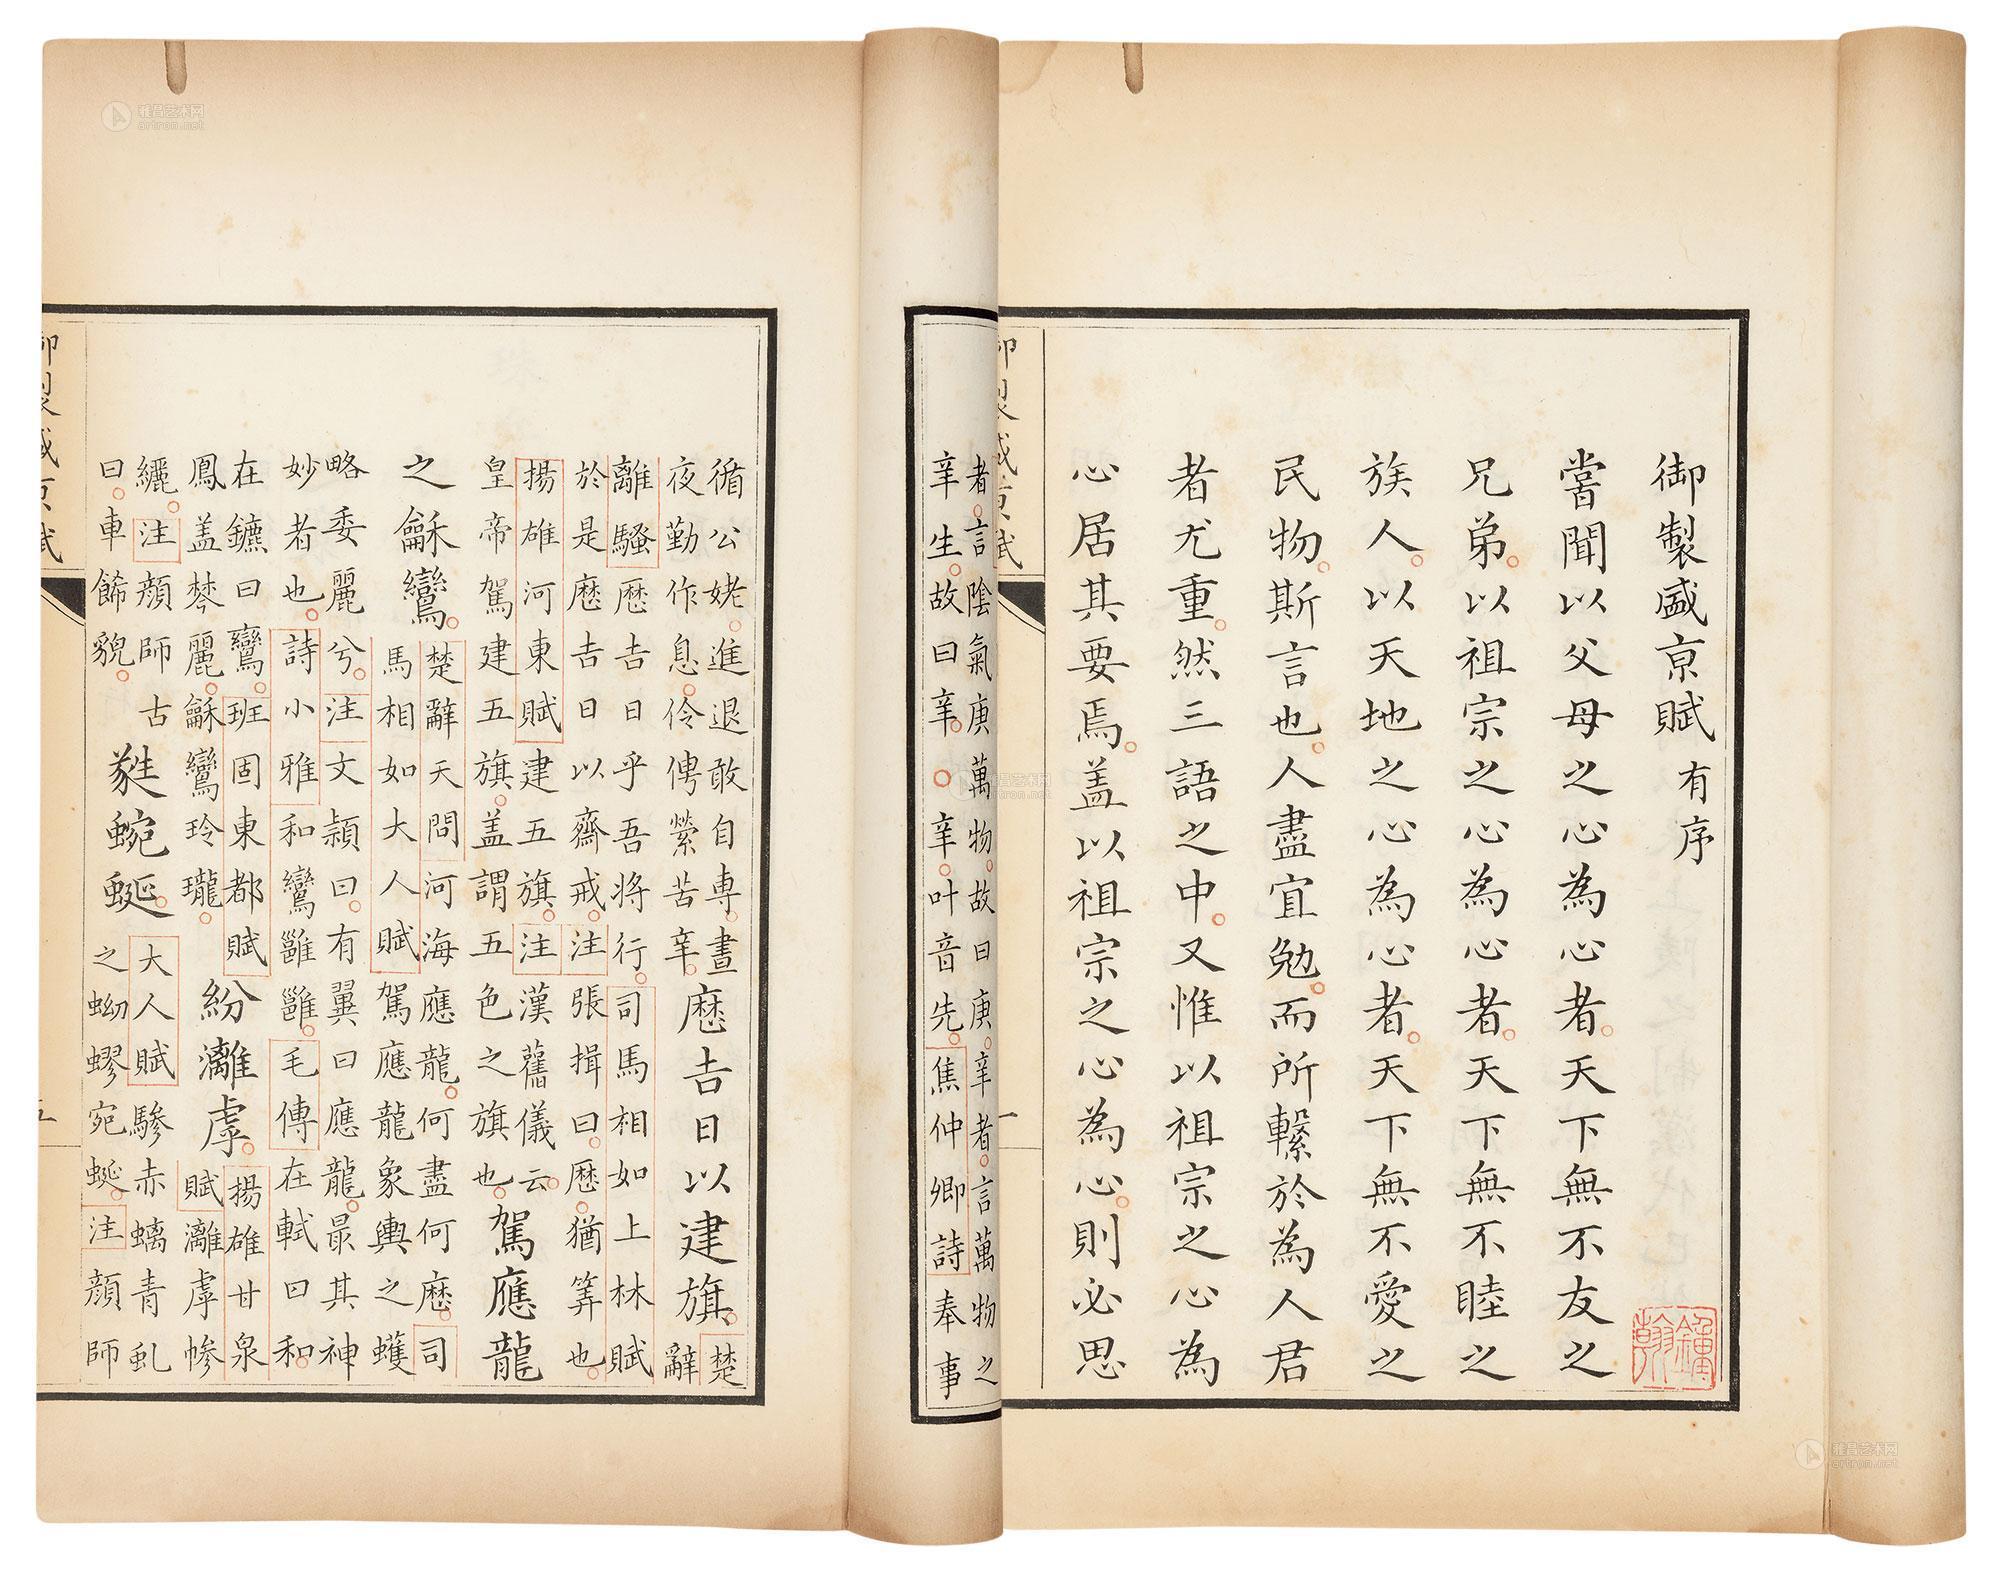 御製盛京賦有序
嘗聞以父母之心為心者天下無不友之
兄弟以祖宗之心為心者天下無不睦之
族人以天地之心為心者天下無不愛之
民物斯言也人盡宜勉而所繫於為人君
者尤重然三語之中又惟以祖宗之心為
心居其要焉盖以祖宗之心為心則必思
一
者言陰氣庚萬物故曰庚辛者言萬物之
辛生故曰辛辛叶音先焦仲卿詩奉事
循公姥進退敢自專晝
夜勤作息伶俜縈苦辛
歷吉日以建旗
楚
辭
離騷歷吉日乎吾將行司馬相如上林賦
於是歷吉日以齋戒注張揖曰歷猶筭也
揚雄河東賦建五旗注漢舊儀云
皇帝駕建五旗盖謂五色之旗也
駕應龍
之龢鸞
楚辭天問河海應龍何盡何歷司
馬相如大人賦駕應龍象輿之蠖
略委麗兮注文穎曰有翼曰應龍最其神
妙者也詩小雅和鸞雝雝毛傳在軾曰和
在鑣曰鸞班固東都賦
鳳盖棽麗龢鸞玲瓏
紛灕虖
揚雄甘泉
賦灕虖幓
纚注顏師古
曰車飾貌
蕤蜿蜒
大人賦驂赤螭青虬
之蚴蟉宛蜒注顏師
五
雅昌艺术网
artron.net
雅昌艺术网
artron.net
雅昌艺术网
artron.net